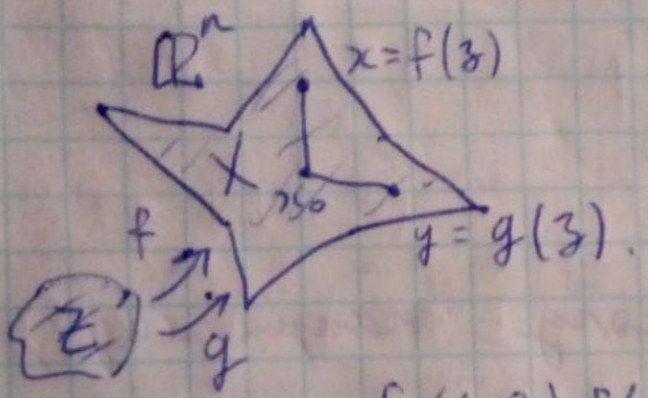 ℝⁿ
x = f(z)
X
x₀
y = g(z).
f
Z
g